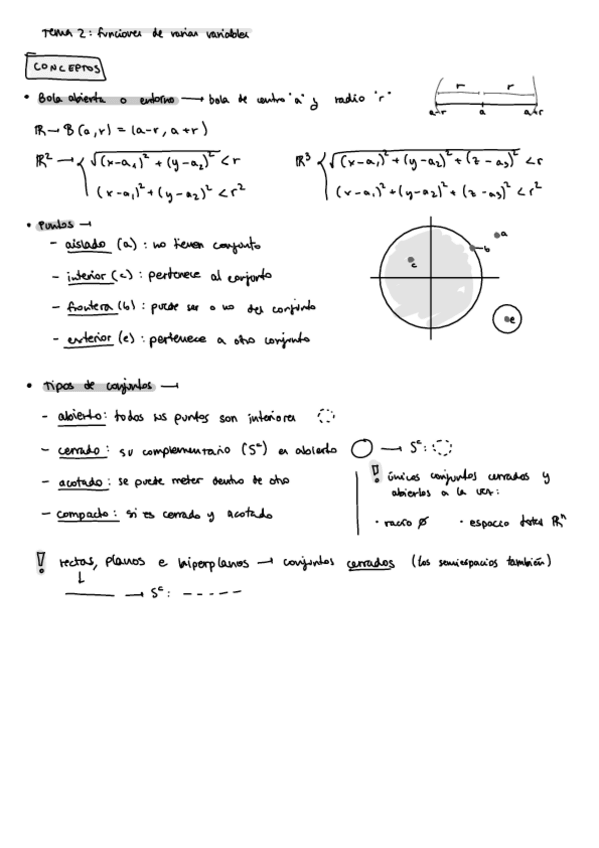 Tema 2: funciones de varias variables
CONCEPTOS
• Bola abierta o entorno → bola de centro "a" y radio "r"
r r
a-r a a+r
R → B(a,r) = (a-r, a+r)
R² → { √(x-a₁)² + (y-a₂)² < r
(x-a₁)² + (y-a₂)² < r²
R³ { √(x-a₁)² + (y-a₂)² + (z-a₃)² < r
(x-a₁)² + (y-a₂)² + (z-a₃)² < r²
• Puntos →
- aislado (a): no tienen conjunto
- interior (c): pertenece al conjunto
- frontera (b): puede ser o no del conjunto
- exterior (e): pertenece a otro conjunto
a
b
c
e
• Tipos de conjuntos →
- abierto: todos sus puntos son interiores
- cerrado: su complementario (Sᶜ) es abierto → Sᶜ:
- acotado: se puede meter dentro de otro
- compacto: si es cerrado y acotado
! únicos conjuntos cerrados y
abiertos a la vez:
· vacío ∅ · espacio total Rⁿ
! rectas, planos e hiperplanos → conjuntos cerrados (los semiespacios también)
→ Sᶜ: - - - - -